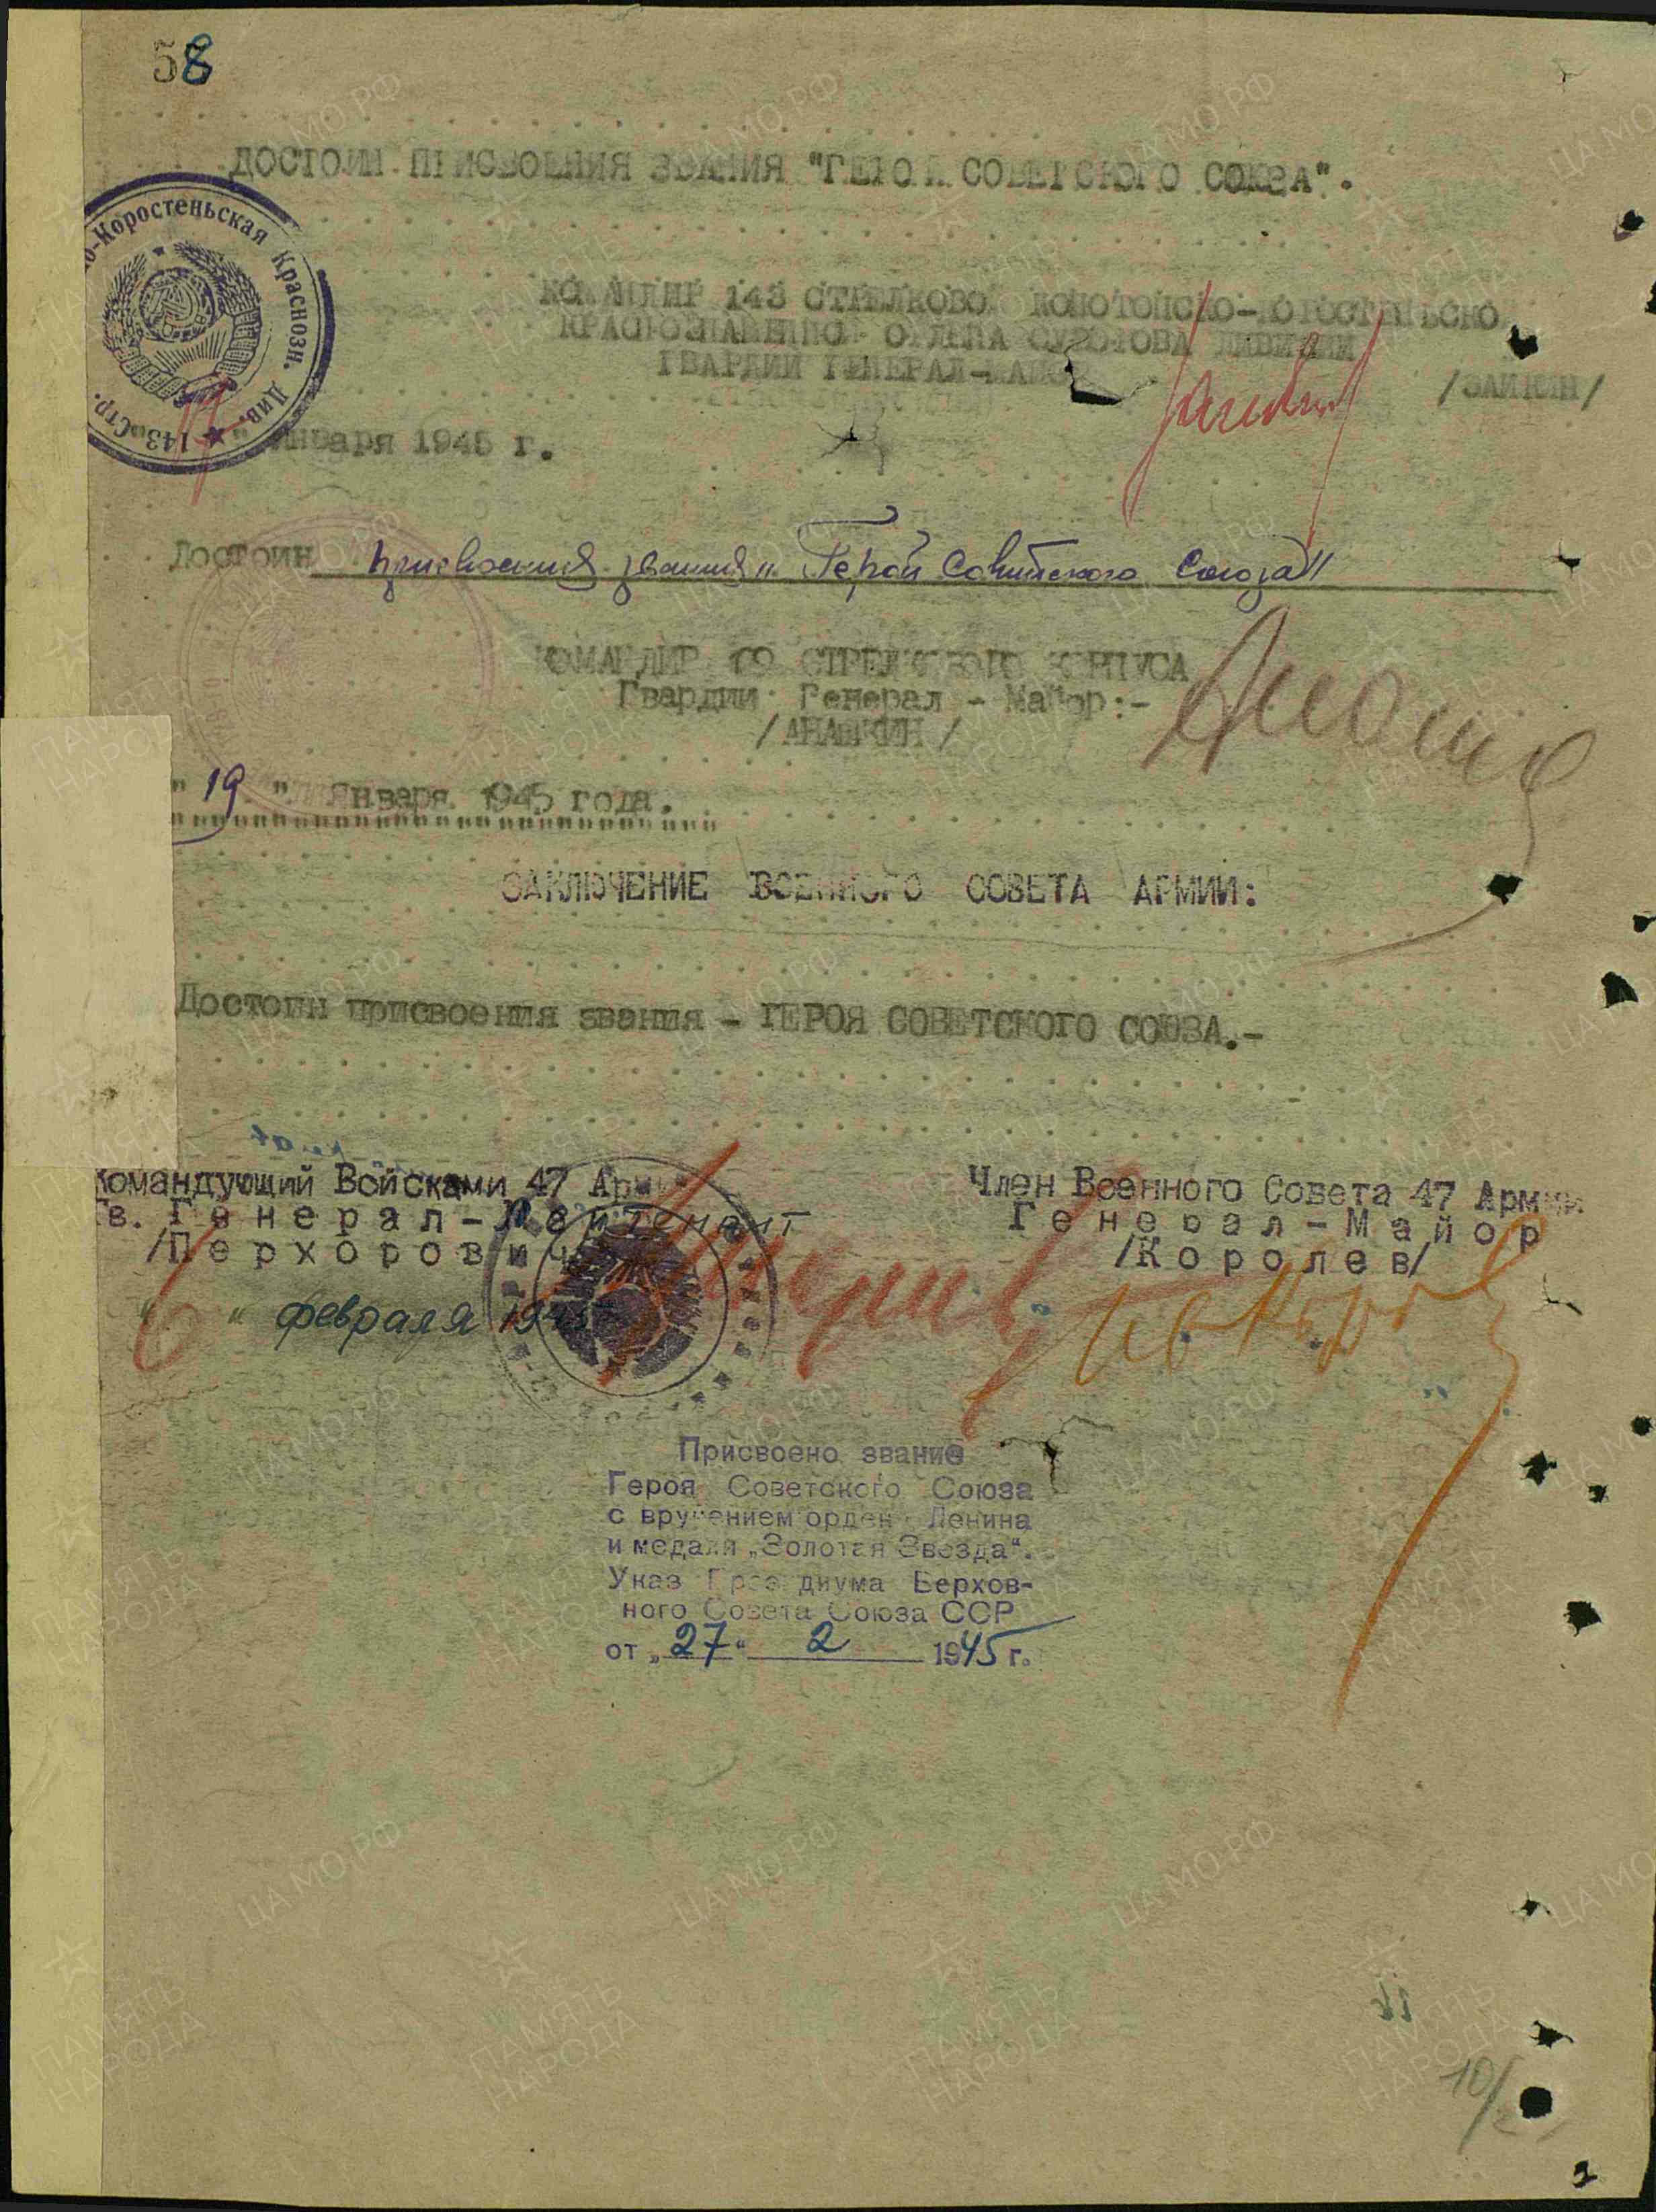 58
ДОСТОИН ПРИСВОЕНИЯ ЗВАНИЯ "ГЕРОЙ СОВЕТСКОГО СОЮЗА".
о-Коростеньская Краснозн. Див. ★ 143 Стр.
КОМАНДИР 143 СТРЕЛКОВОЙ КОНОТОПСКО-КОРОСТЕНЬСКОЙ
КРАСНОЗНАМЕННОЙ ОРДЕНА СУВОРОВА ДИВИЗИИ
ГВАРДИИ ГЕНЕРАЛ-МАЙОР
/ЗАИКИН/
"17" января 1945 г.
Достоин присвоения звания "Герой Советского Союза"
КОМАНДИР СТРЕЛКОВОГО КОРПУСА
Гвардии Генерал - Майор:-
/АНАШКИН/
" 19 " января 1945 года.
ЗАКЛЮЧЕНИЕ ВОЕННОГО СОВЕТА АРМИИ:
Достоин присвоения звания - ГЕРОЯ СОВЕТСКОГО СОЮЗА.-
Командующий Войсками 47 Армии
Гв. Генерал-Лейтенант
/Перхорович
Член Военного Совета 47 Армии
Генерал-Майор
/Королев/
"6" февраля 1945
Присвоено звание
Героя Советского Союза
с вручением орден Ленина
и медали „Золотая Звезда“.
Указ Президиума Верхов-
ного Совета Союза ССР
от „27“ 2 1945 г.
ПАМЯТЬ НАРОДА
ЦА МО РФ